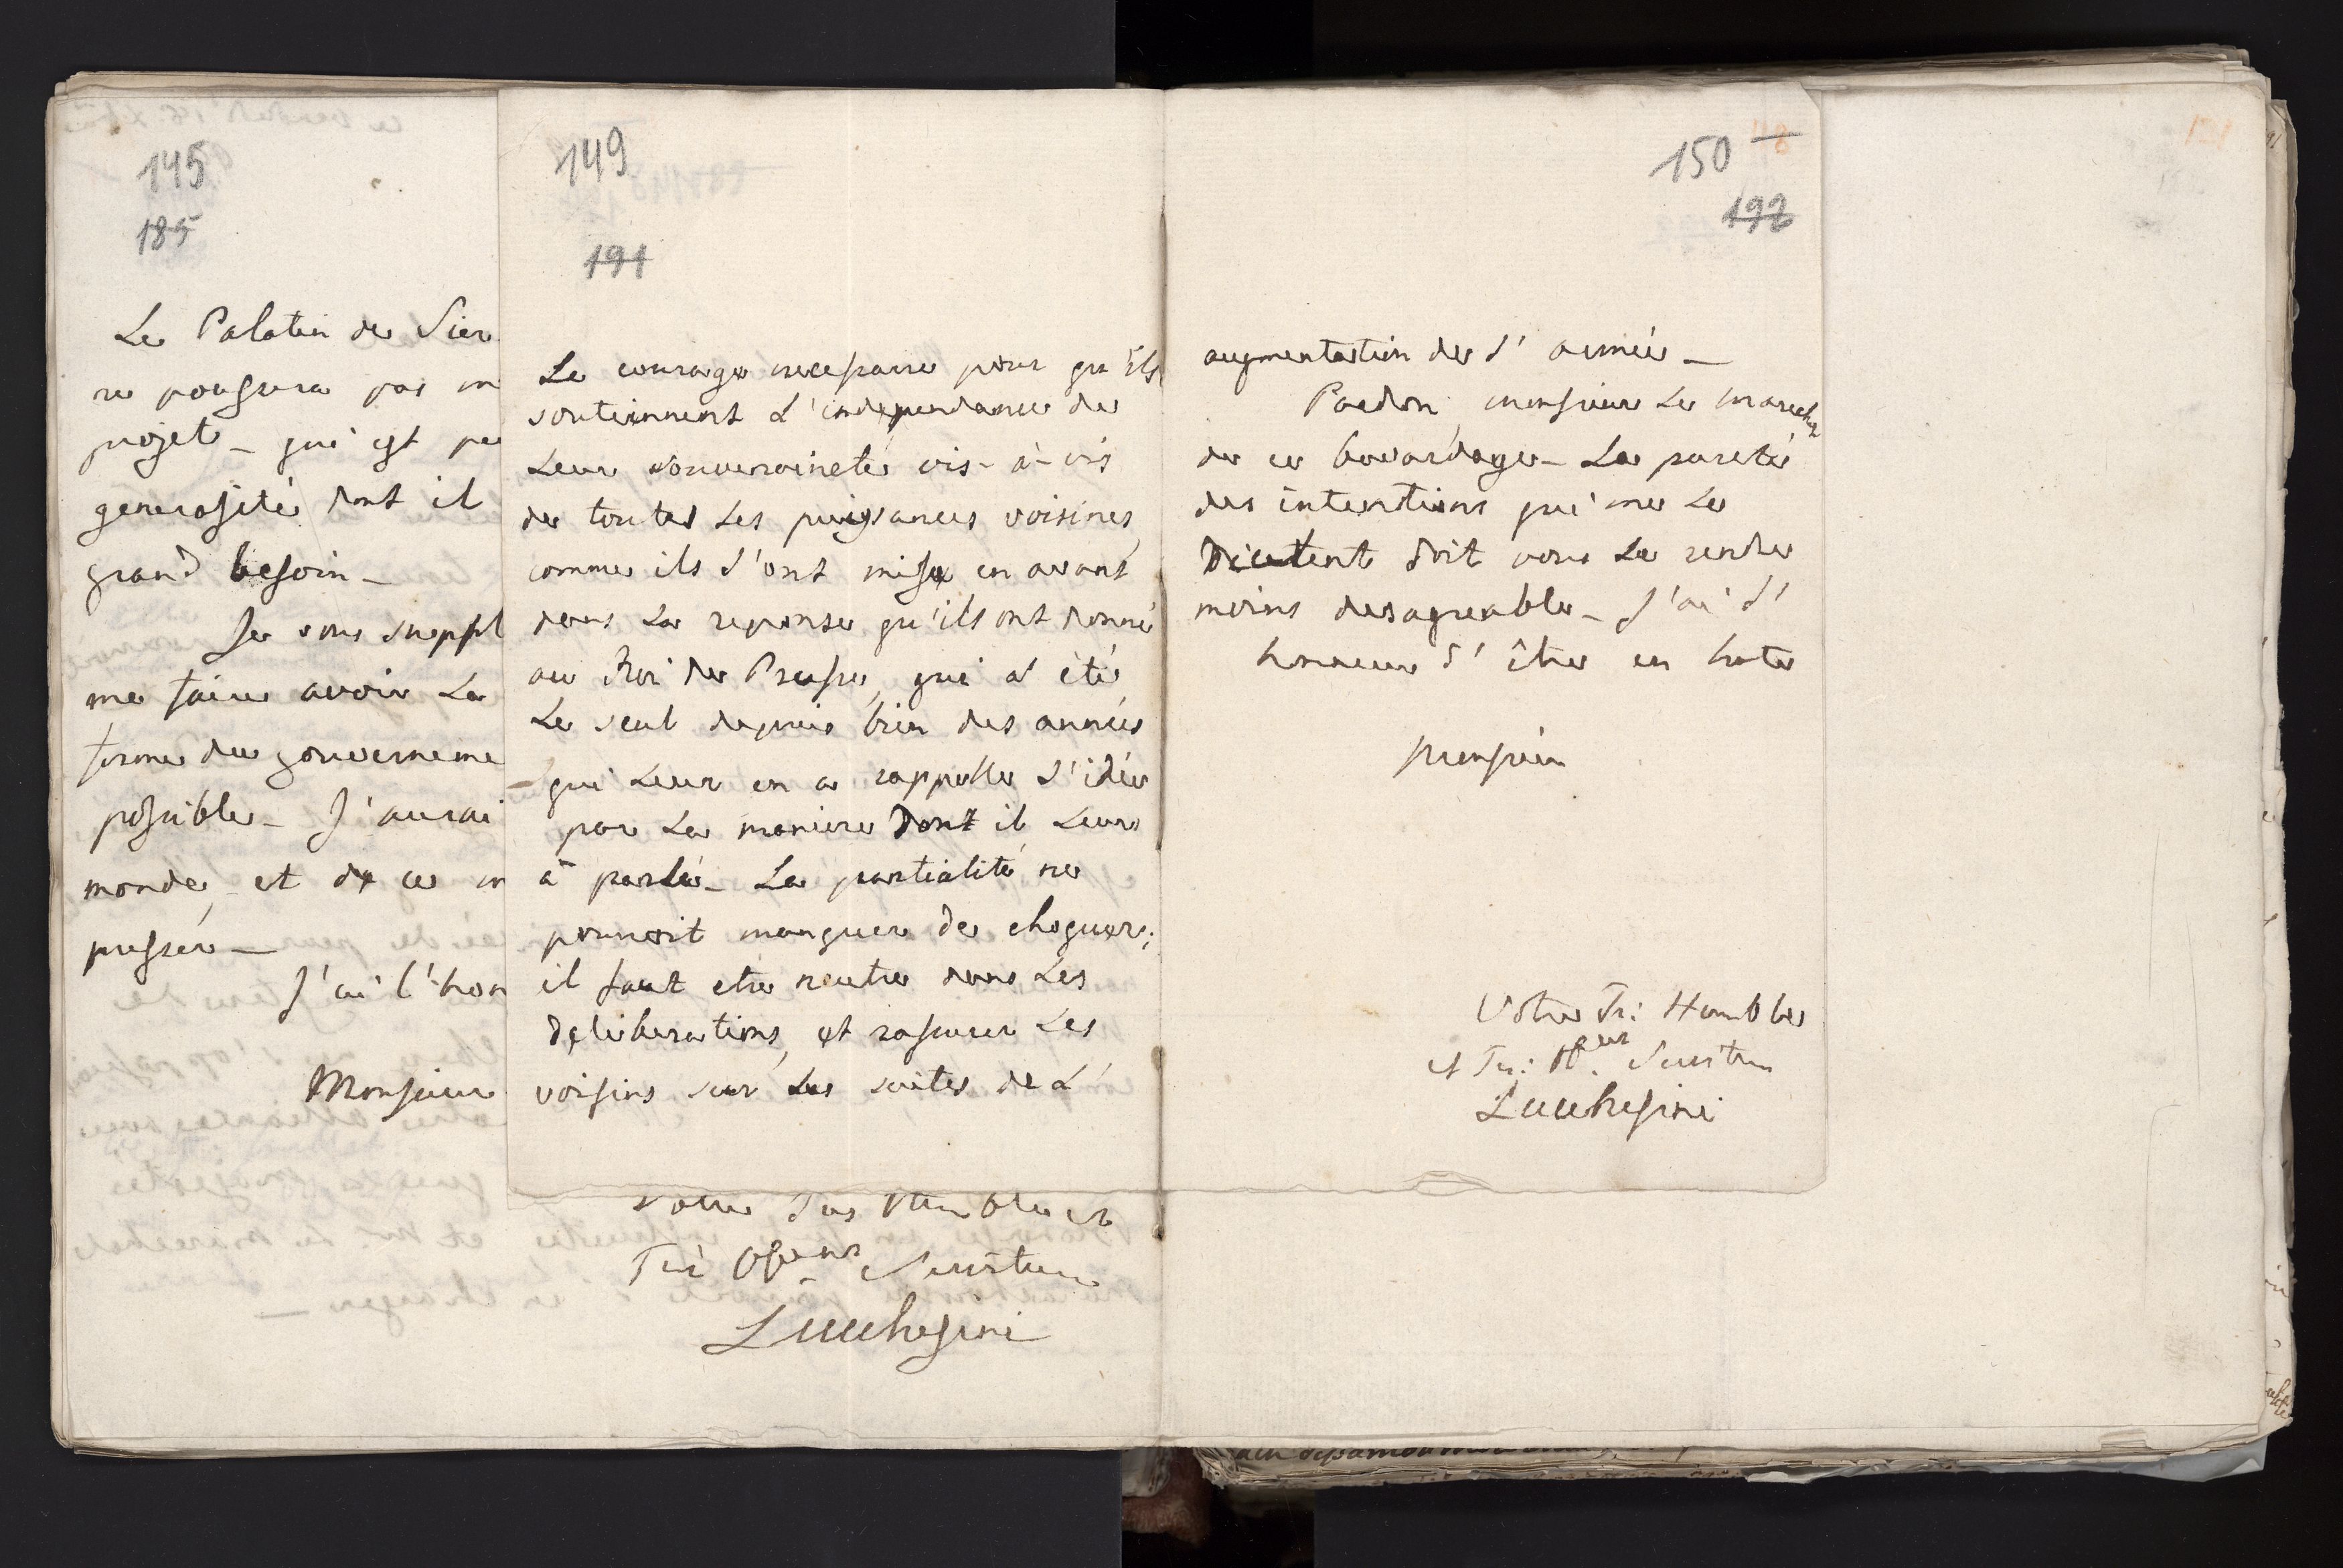 145
185
Le Palatin de Sier
ne poussera pas
projet_ qui est
generosité dont il
grand besoin_
Je vous suppl
me faire avoir La
forme du gouverneme
possible_ J'aurai
monde, et de ce
presser_
J'ai l'hon
Monsieur
Votre Tres Humble et
Trè Obeiss Serviteur
Lucchesini
149
191
Le courage necessaire pour qu'ils
soutiennent L'independance de
Leur souveraineté vis-à-vis
de toutes Les puissances voisines,
comme ils l'ont mise en avant
dans La reponse qu'ils ont donné
au Roi de Prusse, qui a été
Le seul depuis bien des années
qui Leur en a rappelle L'idée
par La maniere Dont il Leur
à parlé_ La partialité ne
pourroit manquer de choquer;
il faut etre neutre dans Les
deliberations, et rassurer Les
voisins sur Les suites de L'
150
192
augmentation de l'armée_
Pardon, monsieur Le marechal
de ce bavardage_ La pureté
des intentions qui me Le
Dictent doit vous Le rendre
moins desagreable_ J'ai l'
honneur d'être en hate
Monsieur
Votre Tr: Humble
et Tr: Serviteur
Lucchesini